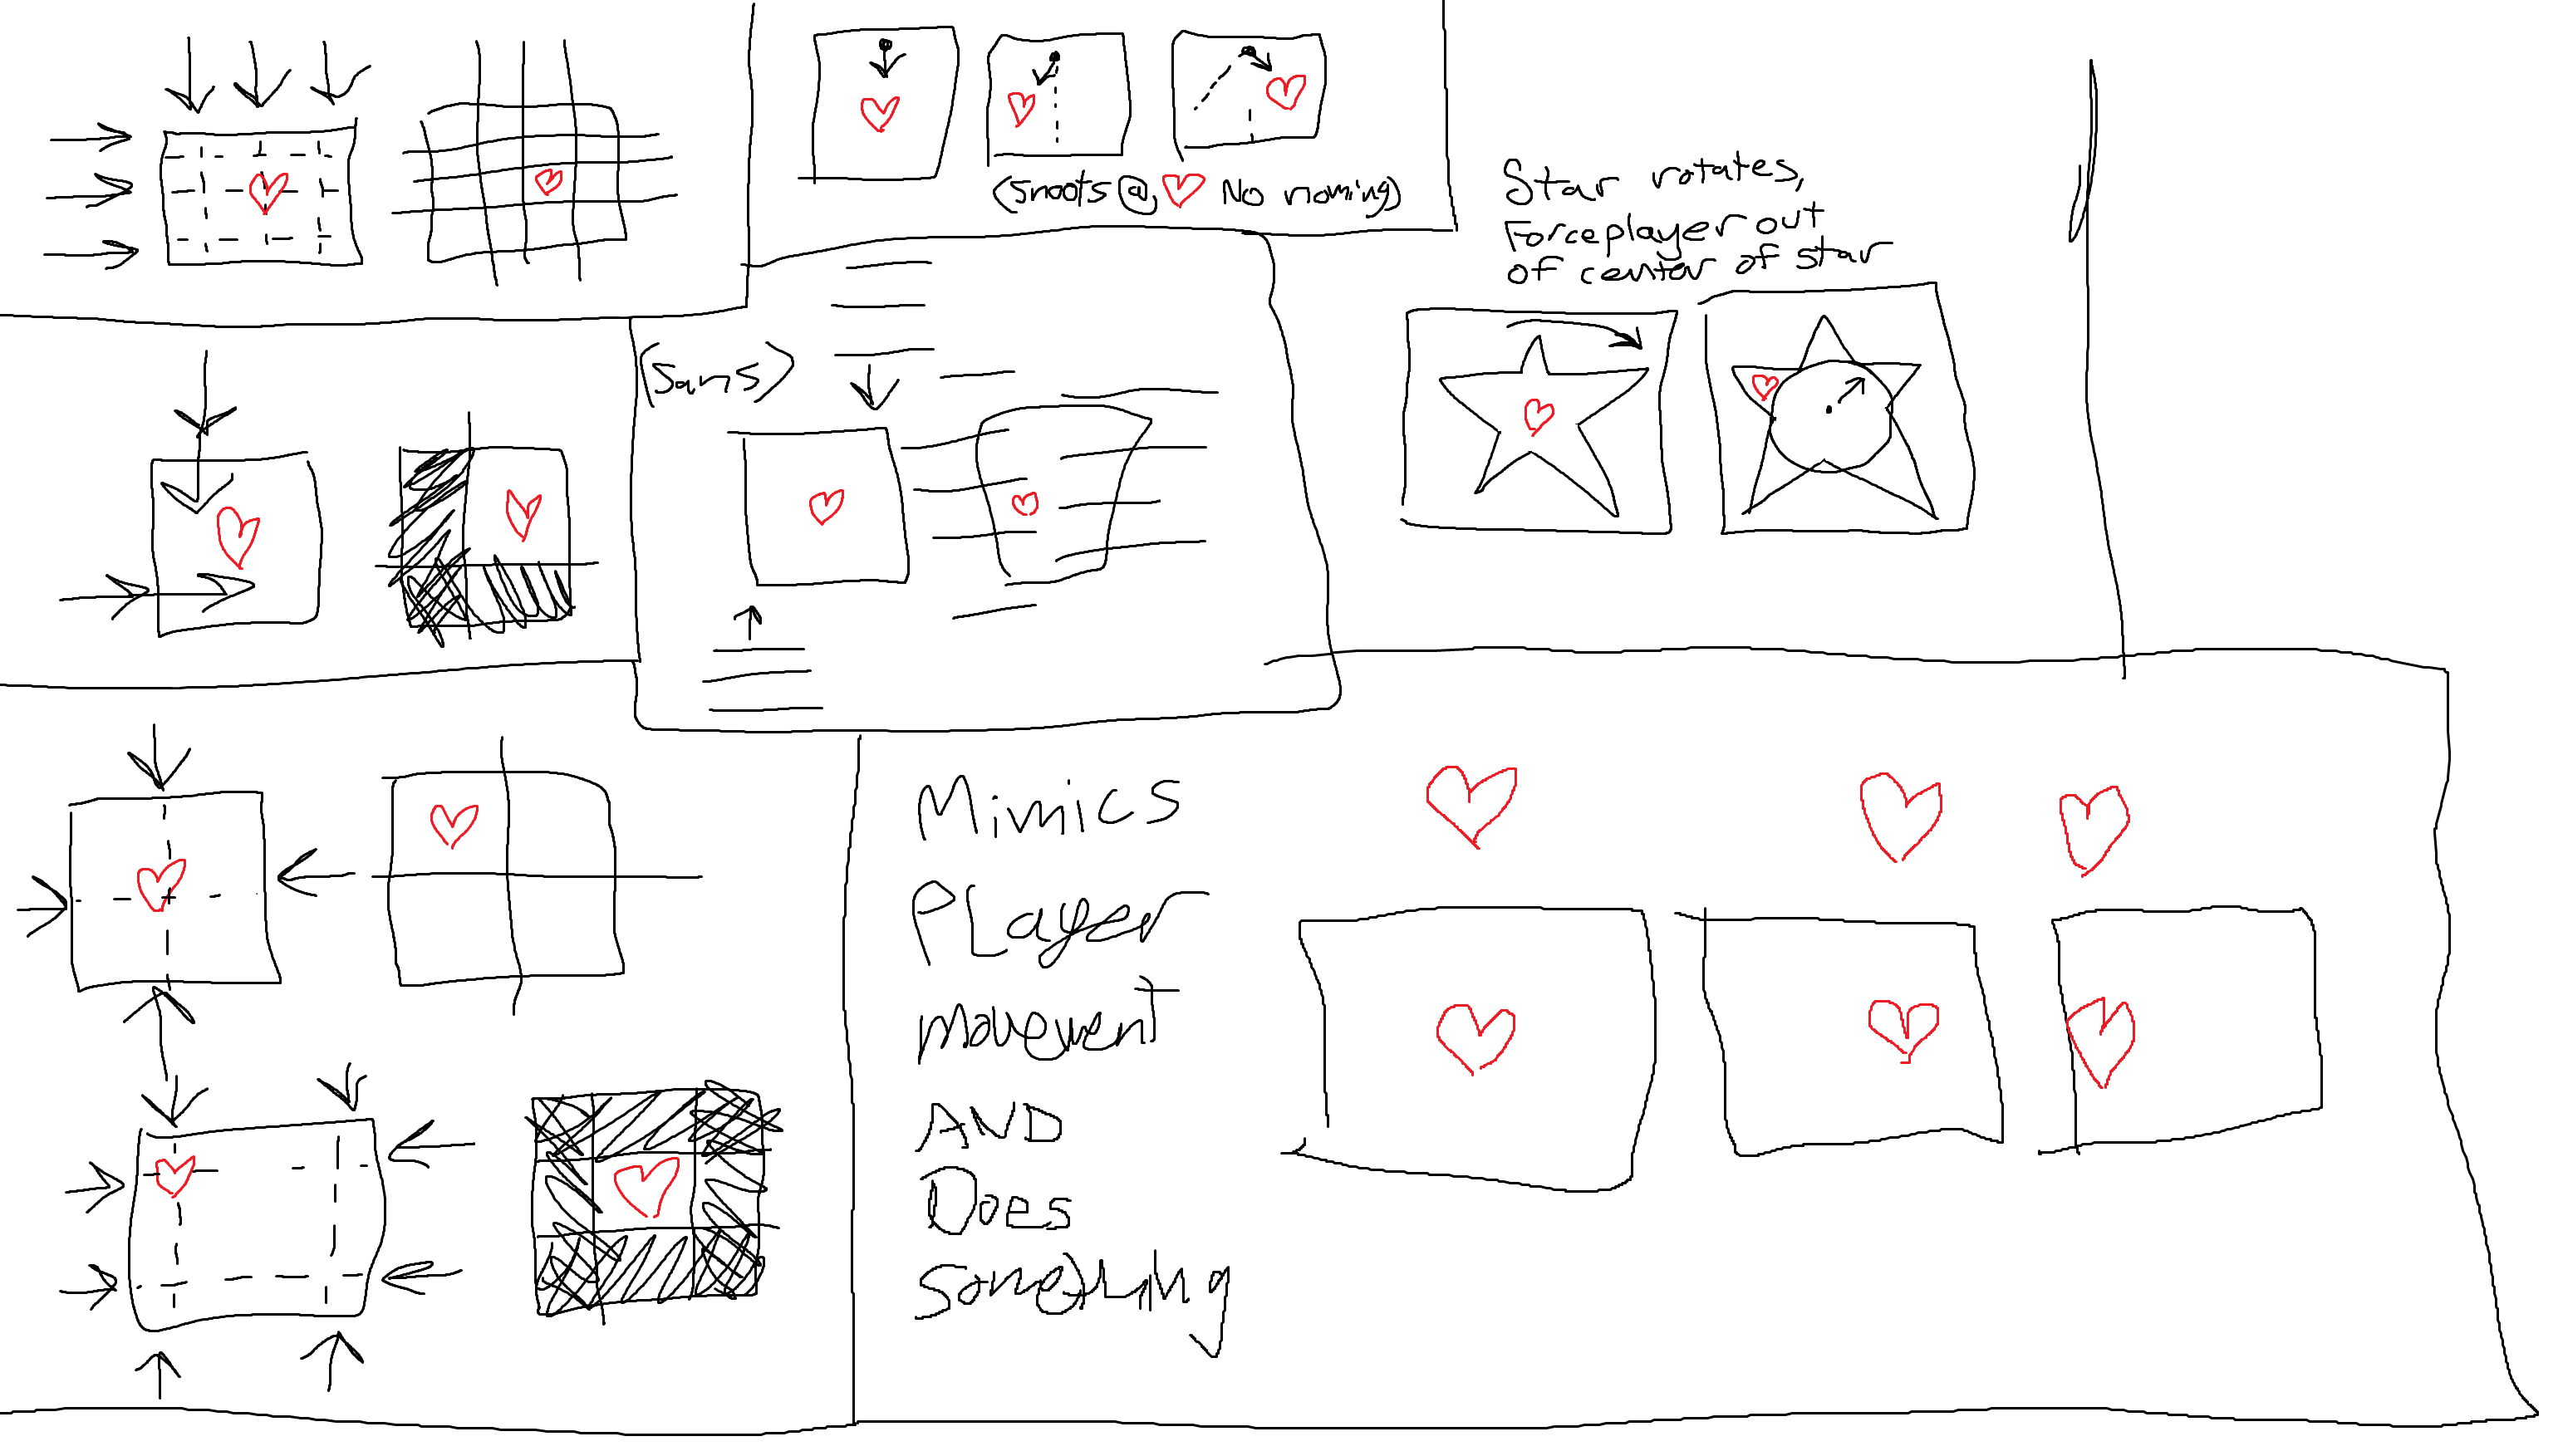 (Shoots @ ♡ No homing)
Star rotates,
Force player out
of center of star
(Sans)
Mimics
PLayer
movement
AND
Does
Something